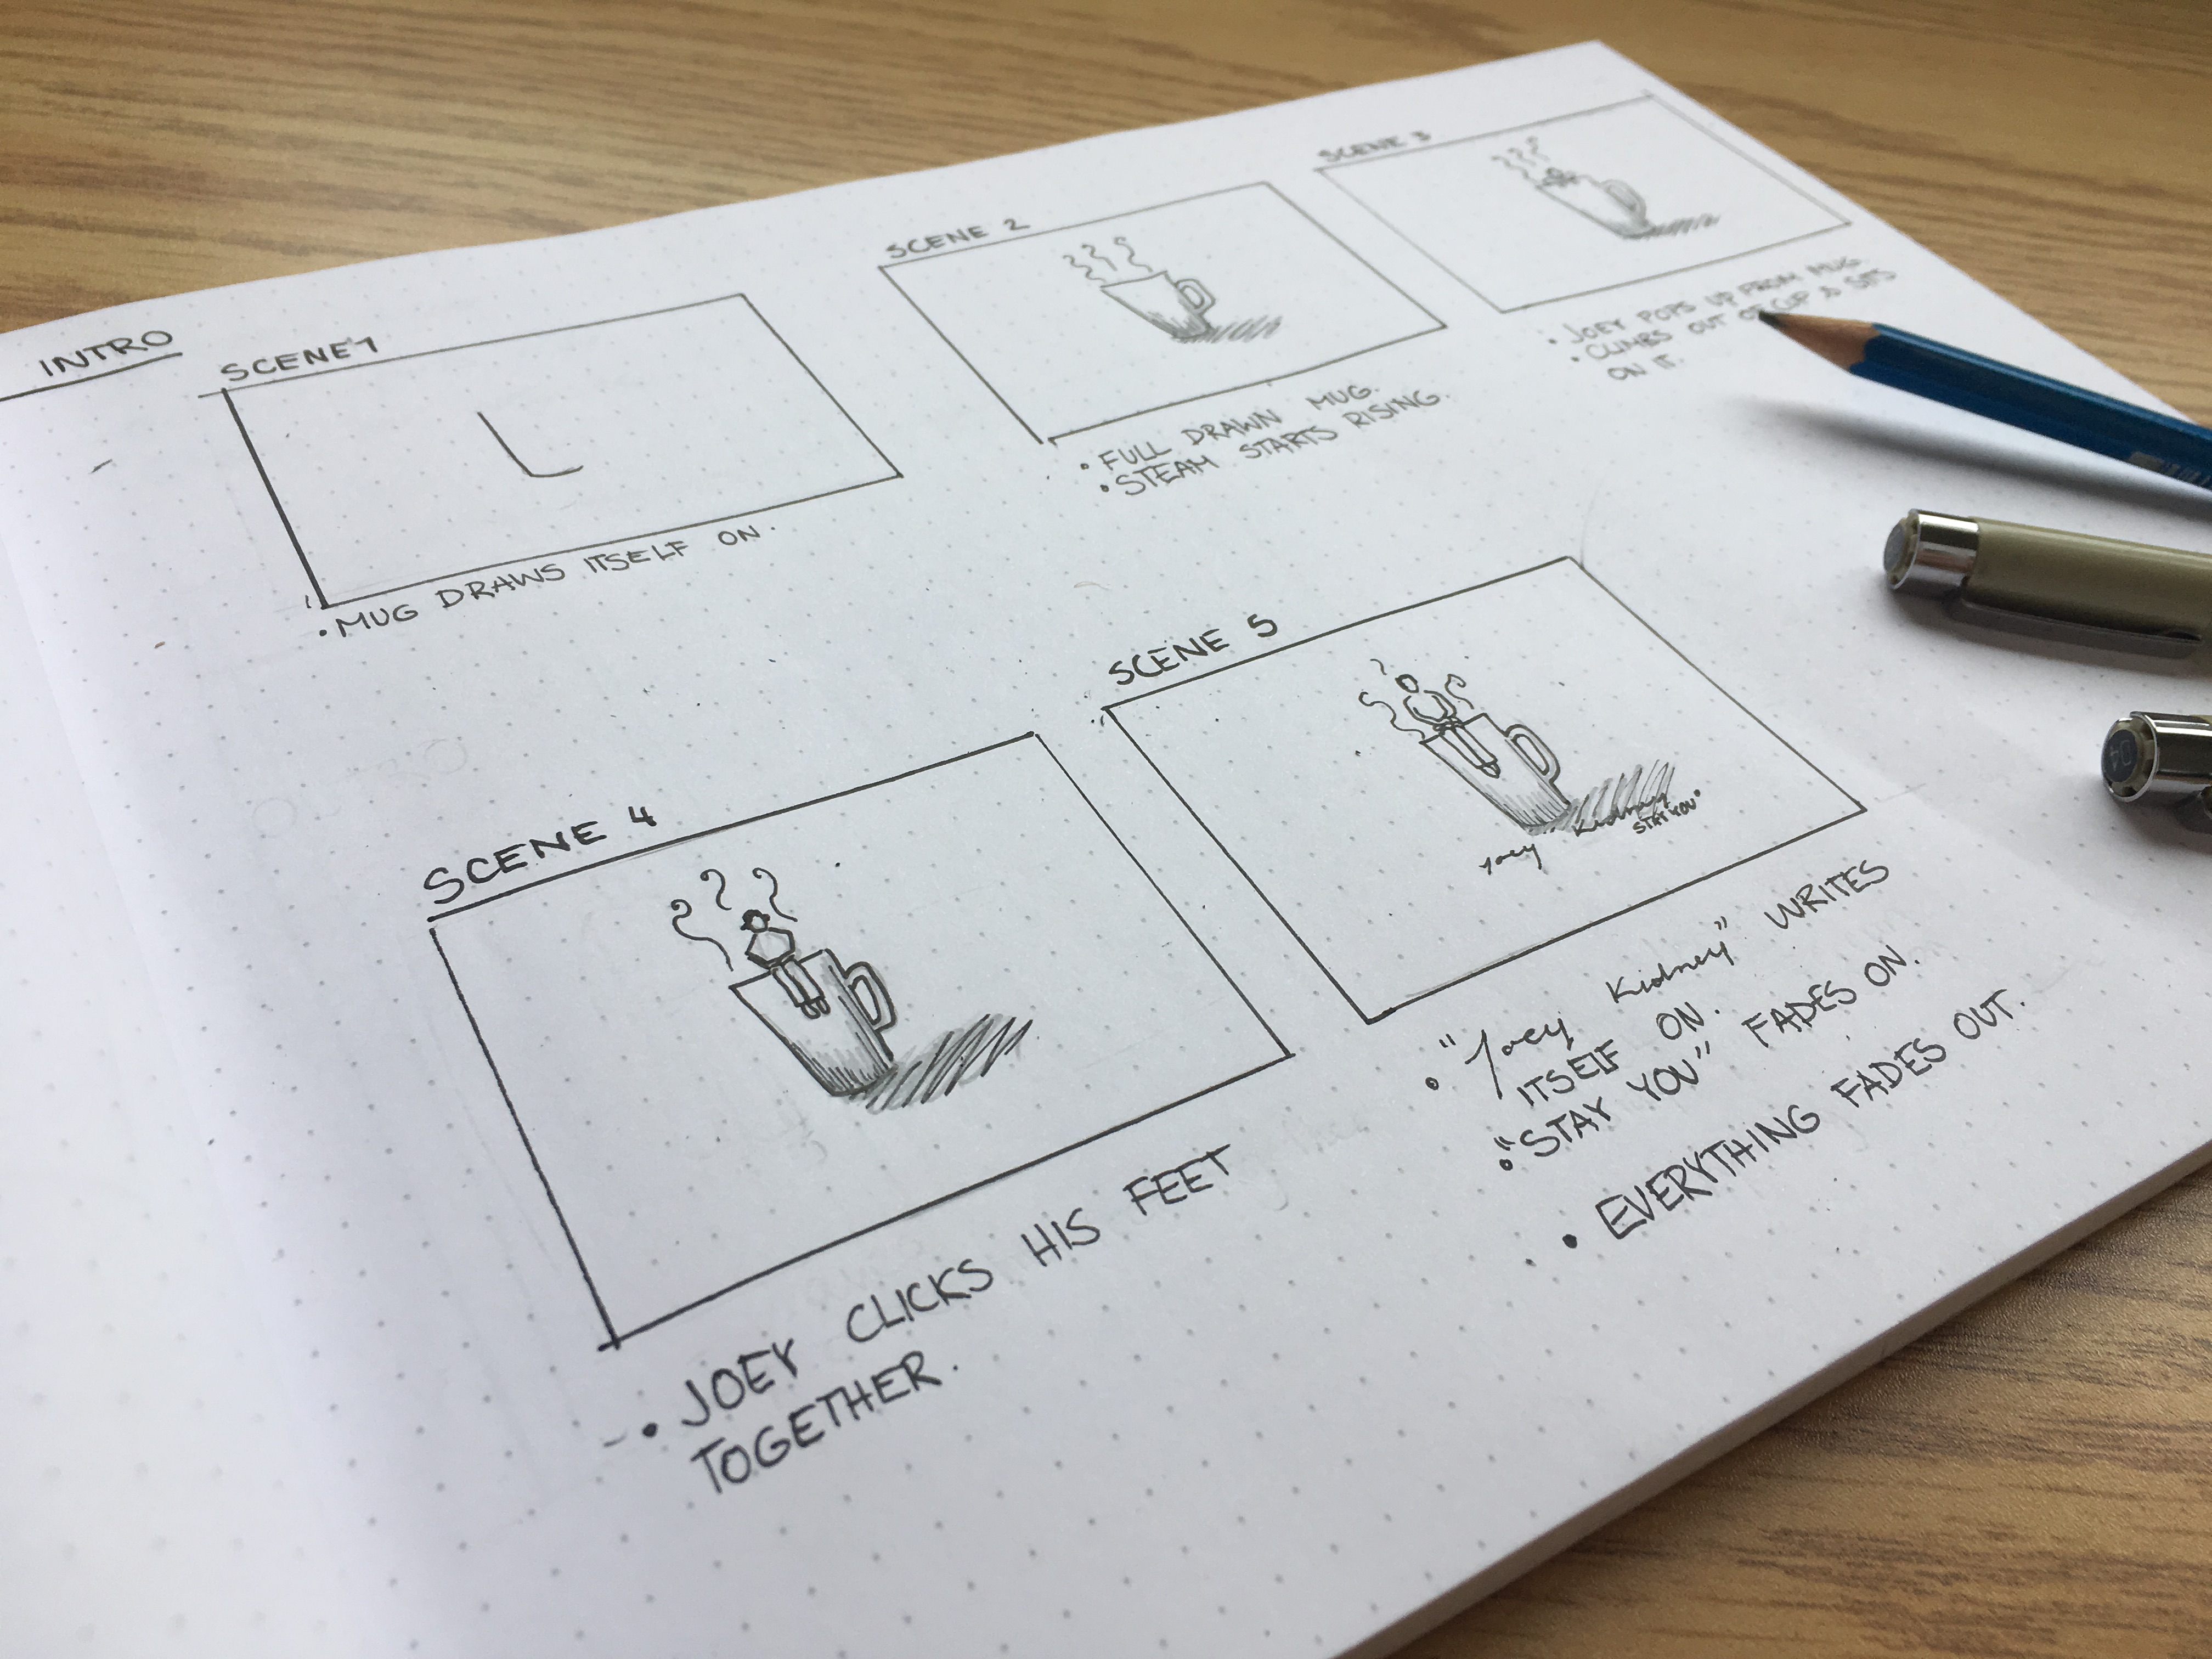 INTRO
SCENE 1
• MUG DRAWS ITSELF ON.
SCENE 2
• FULL DRAWN MUG.
• STEAM STARTS RISING.
SCENE 3
• JOEY POPS UP FROM MUG.
• CLIMBS OUT OF CUP & SITS
ON IT.
SCENE 4
• JOEY CLICKS HIS FEET
TOGETHER.
SCENE 5
Joey Kidney
STAY YOU"
• "Joey Kidney" WRITES
ITSELF ON.
• "STAY YOU" FADES ON.
• EVERYTHING FADES OUT.